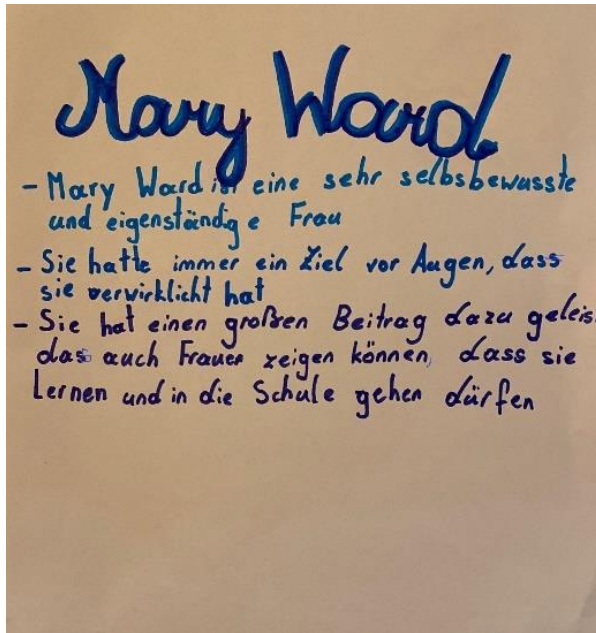 Mary Ward
- Mary Ward ist eine sehr selbsbewusste
und eigenständige Frau
- Sie hatte immer ein Ziel vor Augen, dass
sie verwirklicht hat
- Sie hat einen großen Beitrag dazu geleis
das auch Frauen zeigen können, dass sie
Lernen und in die Schule gehen dürfen